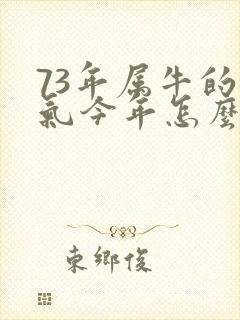 73年属牛的
氣今年怎麽
東鄉俊